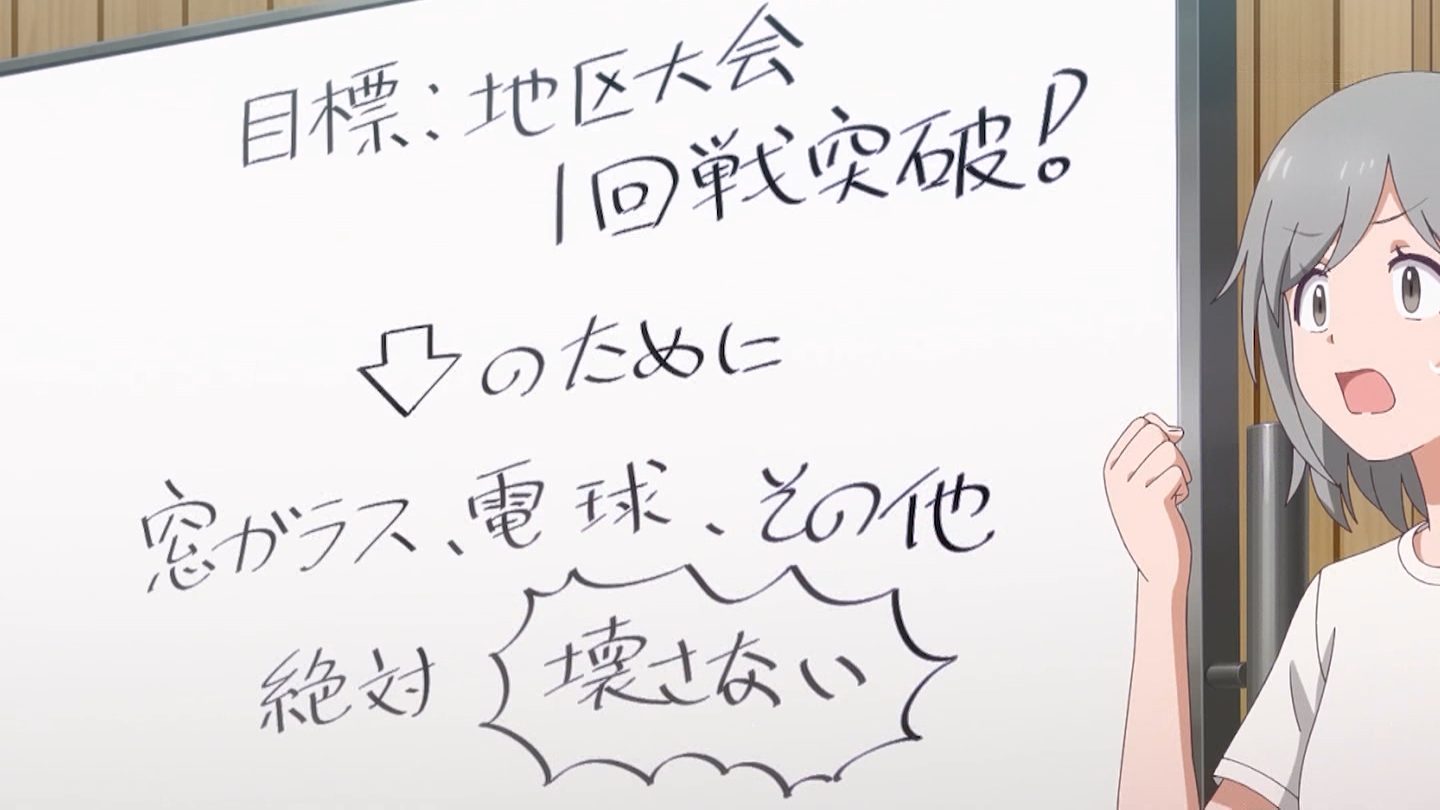 目標：地区大会
1回戦突破！
⇩のために
窓ガラス、電球、その他
絶対 壊さない